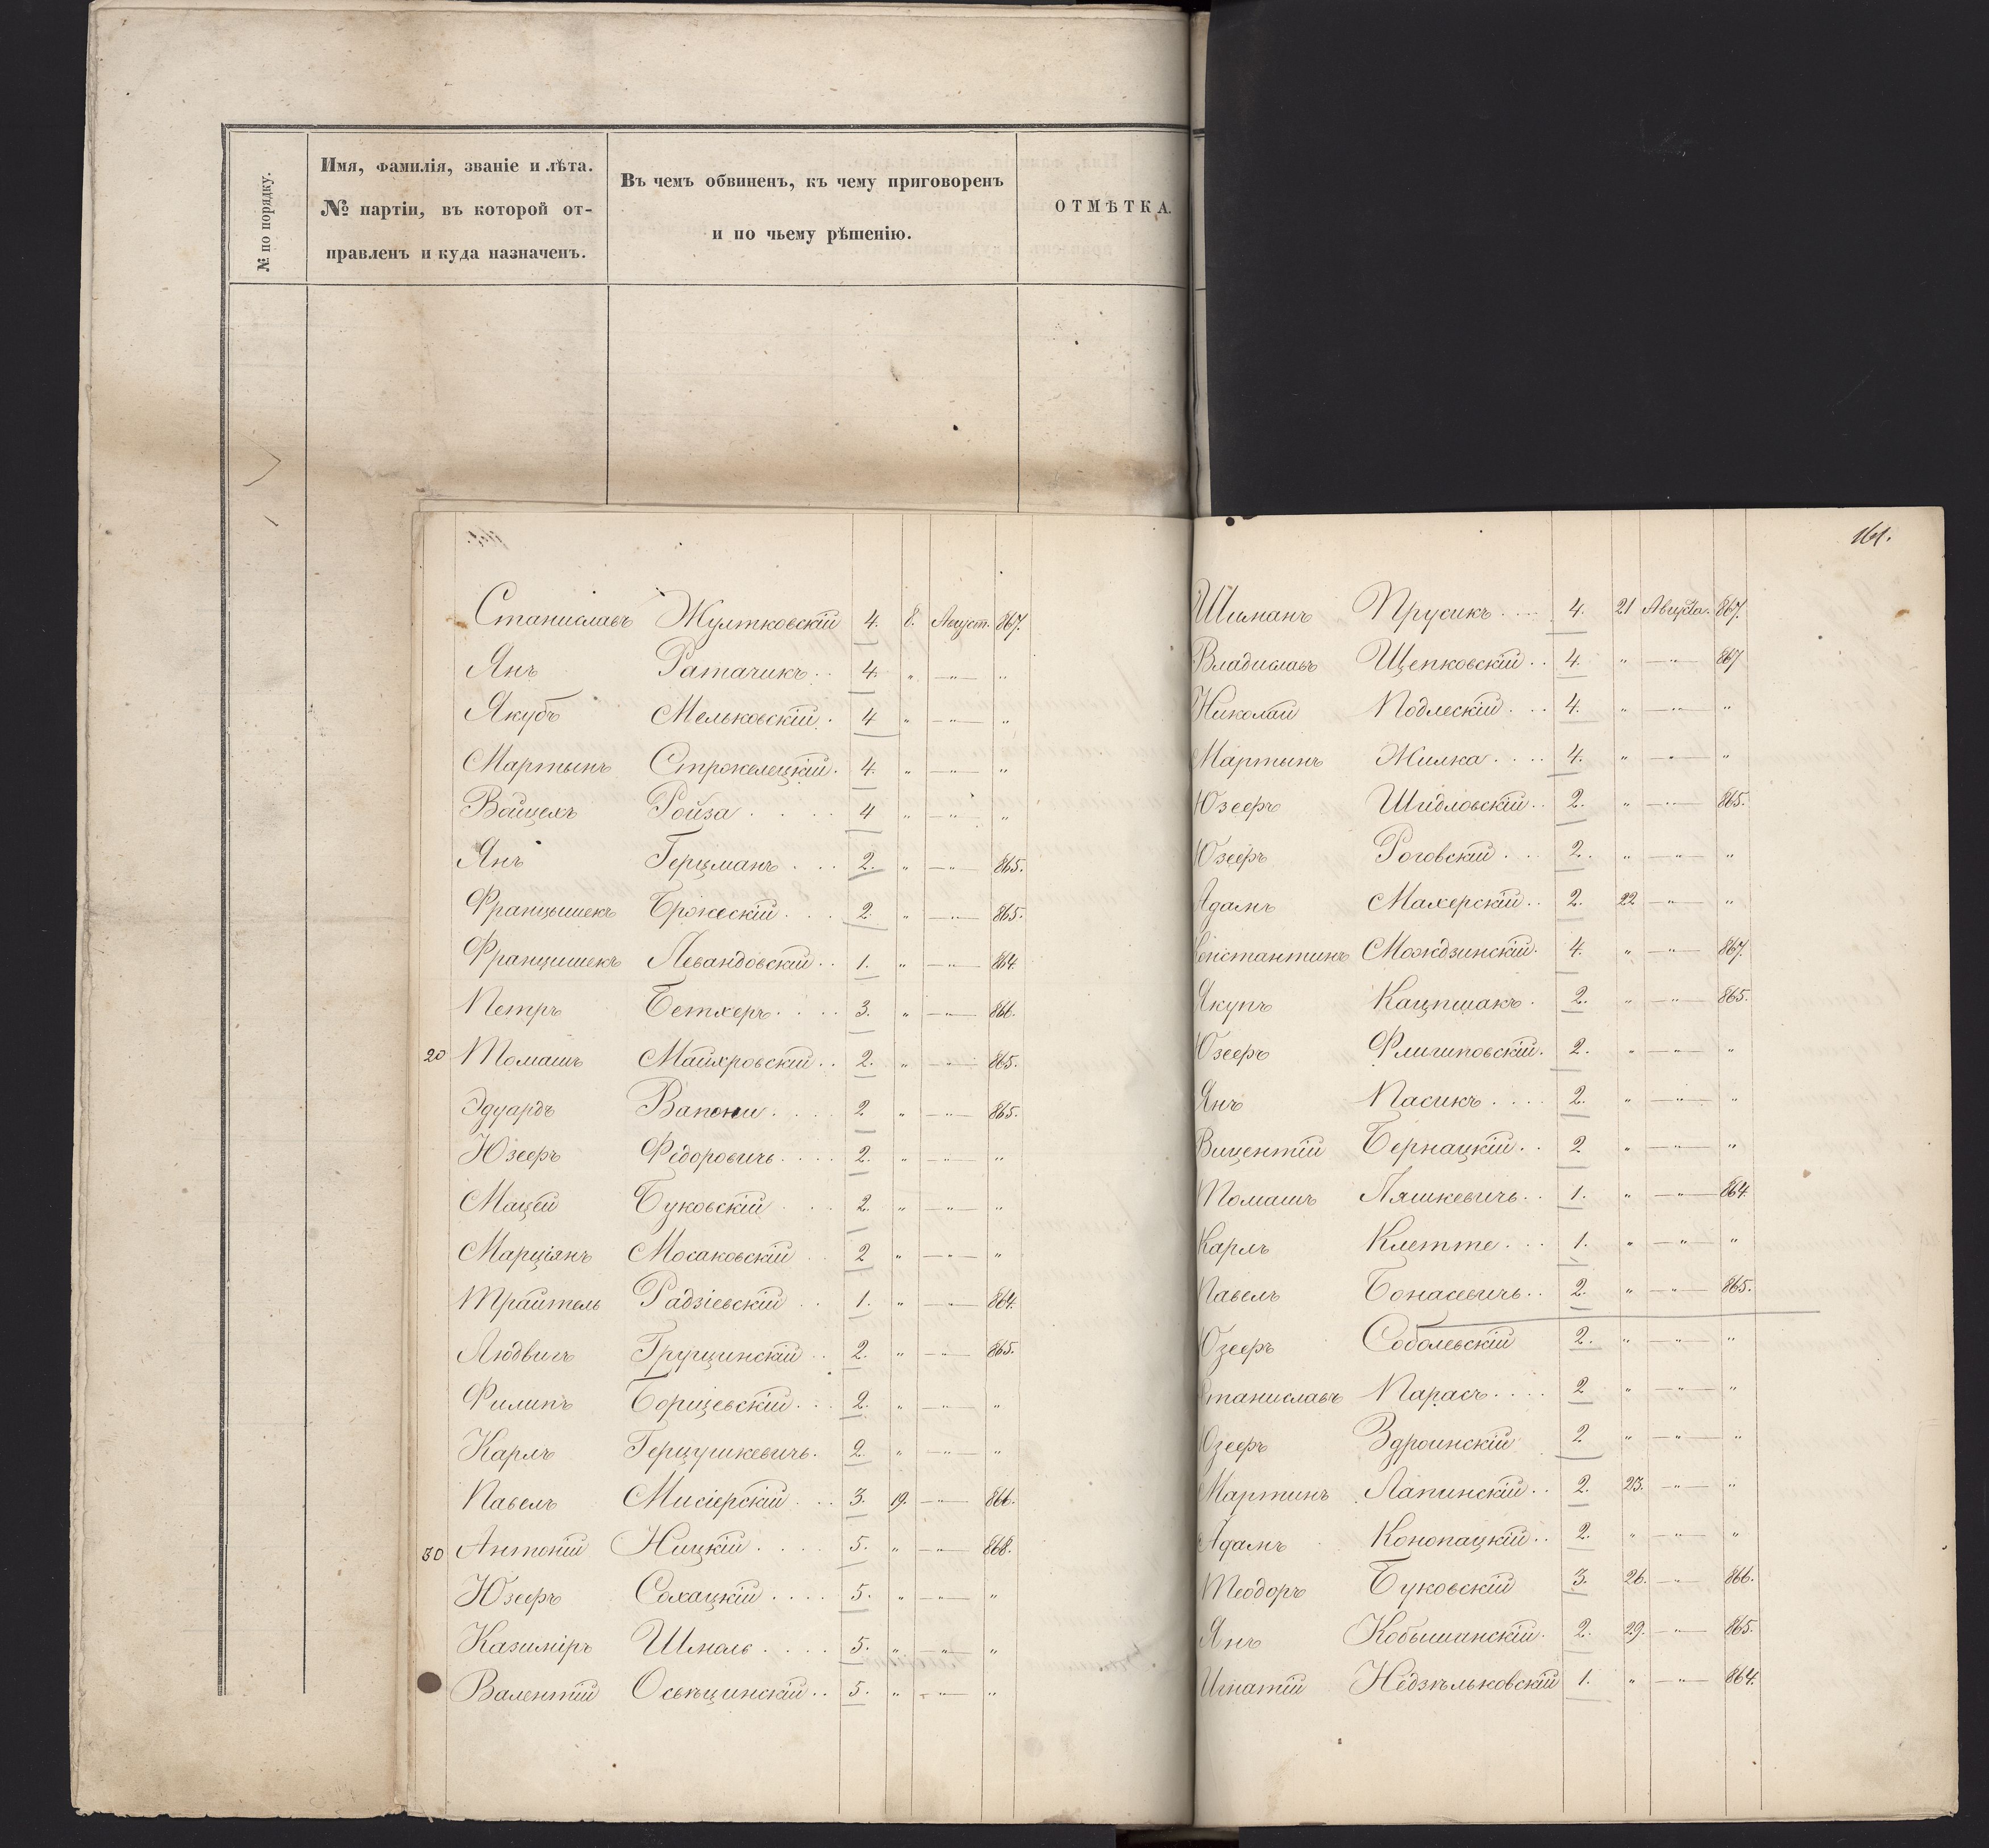 № по порядку.
Имя, фамилія, званіе и лѣта.
№ партіи, въ которой от-
правленъ и куда назначенъ.
Въ чемъ обвиненъ, къ чему приговоренъ
и по чьему рѣшенію.
ОТМѢТКА.
Станиславъ Жултковскій 4. 8. Август. 867.
Янъ Ратачикъ . . 4 " —"— "
Якубъ Мельковскій . 4 " —"— "
Мартынъ Стржелецкій . 4. " —"— "
Войцехъ Ройза . . . . 4 " —"— "
Янъ Герцманъ . . . 2. " —"— 865.
Францышекъ Бржескій . . . 2. " —"— 865.
Францишекъ Левандовскій . . 1. " —"— 864.
Петръ Бетхеръ . . . . 3. " —"— 866.
20 Томашъ Майхровскій . . 2. " —"— 865.
Эдуардъ Вапони . . . . 2 " —"— 865.
Юзефъ Федоровичъ . . . . 2. " —"— "
Мацей Буковскій . . . 2. " —"— "
Марціянъ Мосаковскій . . 2 " —"— "
Трайтель Радзіевскій . . 1. " —"— 864.
Людвигъ Грущинскій . . 2. " —"— 865.
Филипъ Борщевскій . . . 2. " —"— "
Карлъ Герцушкевичъ . 2. " —"— "
Павелъ Мисіерскій . . . 3. 19. —"— 866.
30 Антоній Ницкій . . . . 5. " —"— 868.
Юзефъ Сохацкій . . . . 5. " —"— "
Казиміръ Шмаль . . . . 5. " —"— "
Валентій Осѣцинскій . . 5. " —"— "
161.
Шиманъ Прусикъ . . . . 4. 21 Августа. 867.
Владиславъ Щепковскій . . 4. " —"— 867
Николай Подлескій . . . 4. " —"— "
Мартынъ Жилка . . . . 4. " —"— "
Юзефъ Шидловскій . . 2. " —"— 865.
Юзефъ Роговскій . . . 2. " —"— "
Адамъ Махерскій . . 2. 22 —"— "
Константинъ Можdзинскій . 4. " —"— 867.
Якупъ Кацпшакъ . 2. " —"— 865.
Юзефъ Флигиповскій . 2. " —"— "
Янъ Пасикъ . . . . 2. " —"— "
Вицентій Бернацкій . . 2 " —"— "
Томашъ Ляшкевичъ . . 1. " —"— 864.
Карлъ Клетте . . . 1. " —"— "
Павелъ Бонасевичъ . . 2. " —"— 865.
Юзефъ Соболевскій 2. " —"— "
Станиславъ Парасъ . . . . 2 " —"— "
Юзефъ Здроинскій 2 " —"— "
Мартинъ Лапинскій . . 2. 23. —"— "
Адамъ Конопацкій . . 2. " —"— "
Теодоръ Буковскій 3. 26. —"— 866.
Янъ Кобылинскій . 2. 29. —"— 865.
Игнатій Недзѣльковскій 1. " —"— 864.